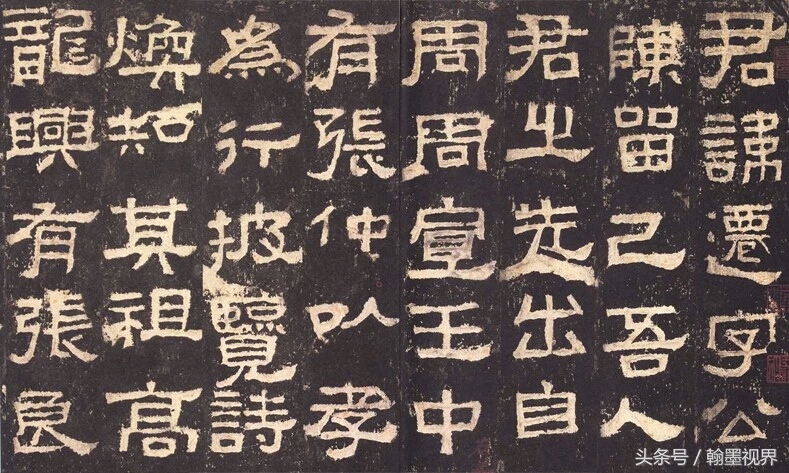 君諱遷字公
陳留己吾人
君之先出自
周周宣王中
有張仲以孝
為行披覽詩
煥知其祖高
龍興有張良
头条号 / 翰墨视界